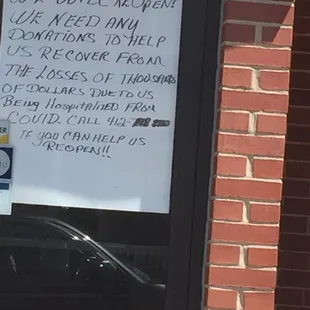 REOPEN!
WE NEED ANY
DONATIONS TO HELP
US RECOVER FROM
THE LOSSES OF THOUSANDS
OF DOLLARS DUE TO US
BEING HOSPITALIZED FROM
COVID. CALL 412-
IF YOU CAN HELP US
REOPEN!!